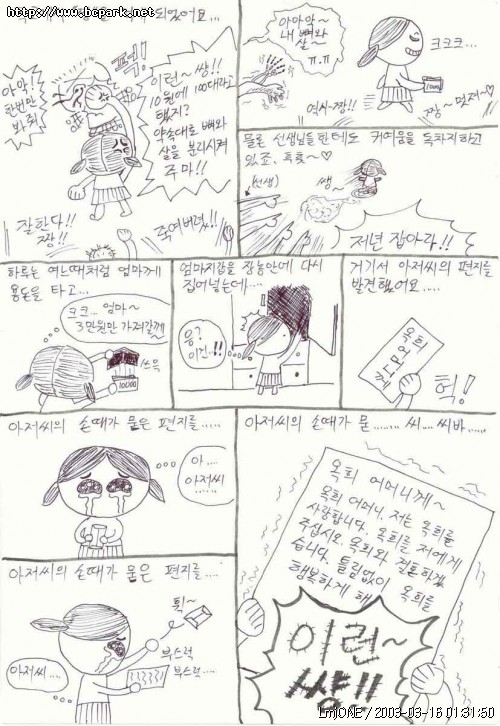 http://www.bcpark.net
되었어요...
퍽!!
아악!!
한번만
봐줘!!
이런~ 썅!!
10원에 100대라고
했지?
약속대로 뼈와
살을 분리시켜
주마!!
잘한다!!
짱!!
죽여버려!!
아아악~
내 뼈와
살~
ㅠ.ㅠ
크크크...
10000
역시~짱!!
짱~ 멋져~♡
물론 선생님들한테도 귀여움을 독차지하고
있죠. 흐흣~♡
(선생)
쌩~
저년 잡아라!!
하루는 여느때처럼 엄마께
용돈을 타고...
크크... 엄마~
3만원만 가져갈께
쓰윽
10000
엄마지갑을 장농안에 다시
집어넣는데....
응?
이건..!!
거기서 아저씨의 편지를
발견했어요.....
옥희
어머니께
헉!
아저씨의 손때가 묻은 편지를.....
아....
아저씨
아저씨의 손때가 묻........ 씨.... 씨바...
옥희 어머니께~
옥희 어머니. 저는 옥희를
사랑합니다. 옥희를 저에게
주십시오. 옥희와 결혼하겠
습니다. 틀림없이 옥희를
행복하게 해
이런~
썅!!
아저씨의 손때가 묻은 편지를....
휙~
아저씨....
부스럭
부스럭....
LmjONE / 2003-03-16 01:31:50